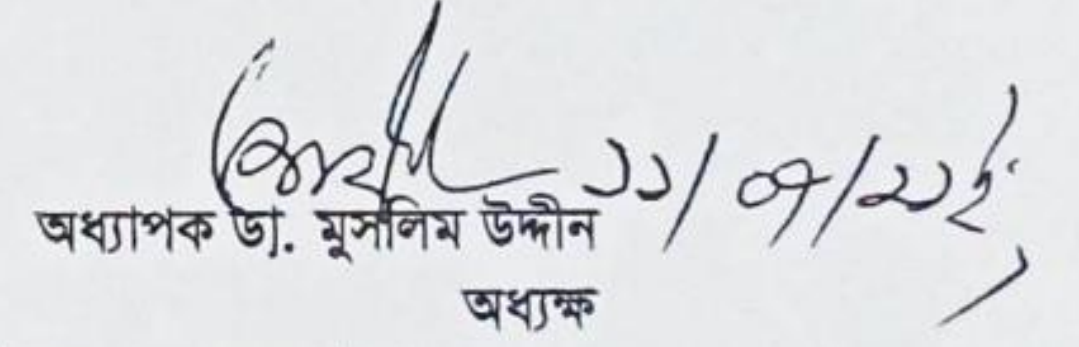 ১১/০৭/২১ইং
অধ্যাপক ডা. মুসলিম উদ্দীন
অধ্যক্ষ